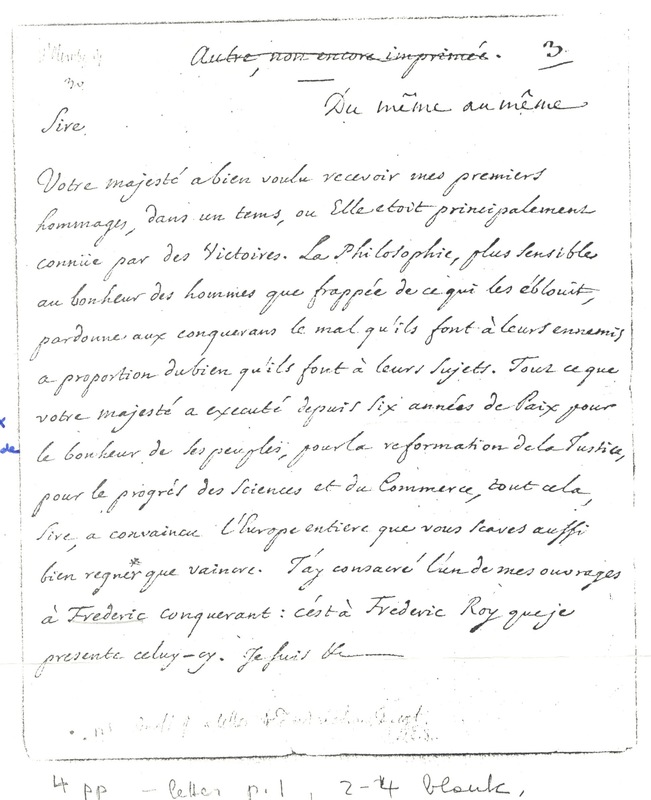 Autre, non encore imprimée. 3
30
Du même au même
Sire
Votre majesté a bien voulu recevoir mes premiers
hommages, dans un tems, ou Elle etoit principalement
connüe par des Victoires. La Philosophie, plus sensible
au bonheur des hommes que frappée de ce qui les éblouit,
pardonne aux conquerans le mal qu'ils font à leurs ennemis
a proportion du bien qu'ils font à leurs sujets. Tout ce que
votre majesté a executé depuis six années de Paix pour
le bonheur de ses peuples, pour la reformation de la Justice,
de
pour le progrés des Sciences et du Commerce, tout cela,
Sire, a convaincu l'Europe entiere que vous scaves aussi
bien regner* que vaincre. J'ay consacré l'un de mes ouvrages
à Frederic conquerant : c'est à Frederic Roy que je
presente celuy-cy. Je suis &c
4 pp – letter p. 1, 2-4 blank.